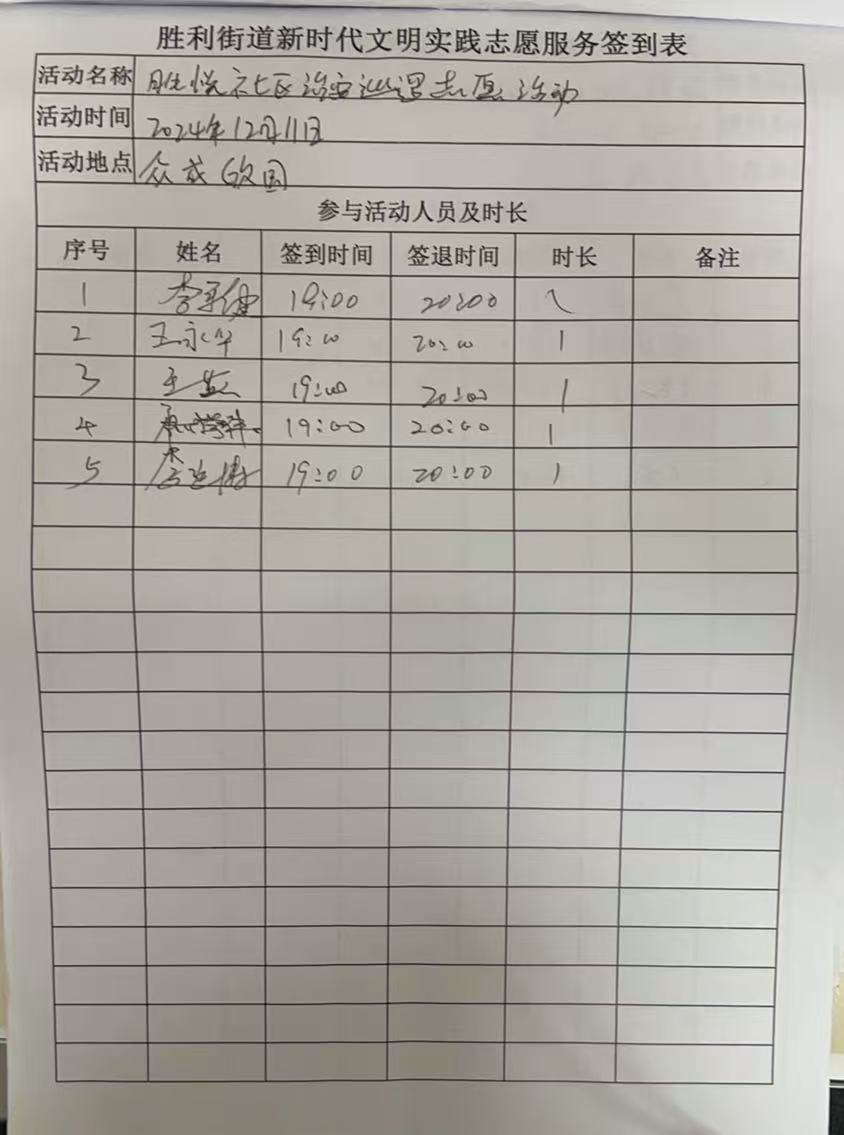 胜利街道新时代文明实践志愿服务签到表
活动名称 胜悦社区治安巡逻志愿活动
活动时间 2024年12月11日
活动地点 众成
参与活动人员及时长
序号 姓名 签到时间 签退时间 时长 备注
1 19:00 20:00
2 王永华 19:00 20:00 1
3 王 19:00 20:00 1
4 19:00 20:00 1
5 19:00 20:00 1